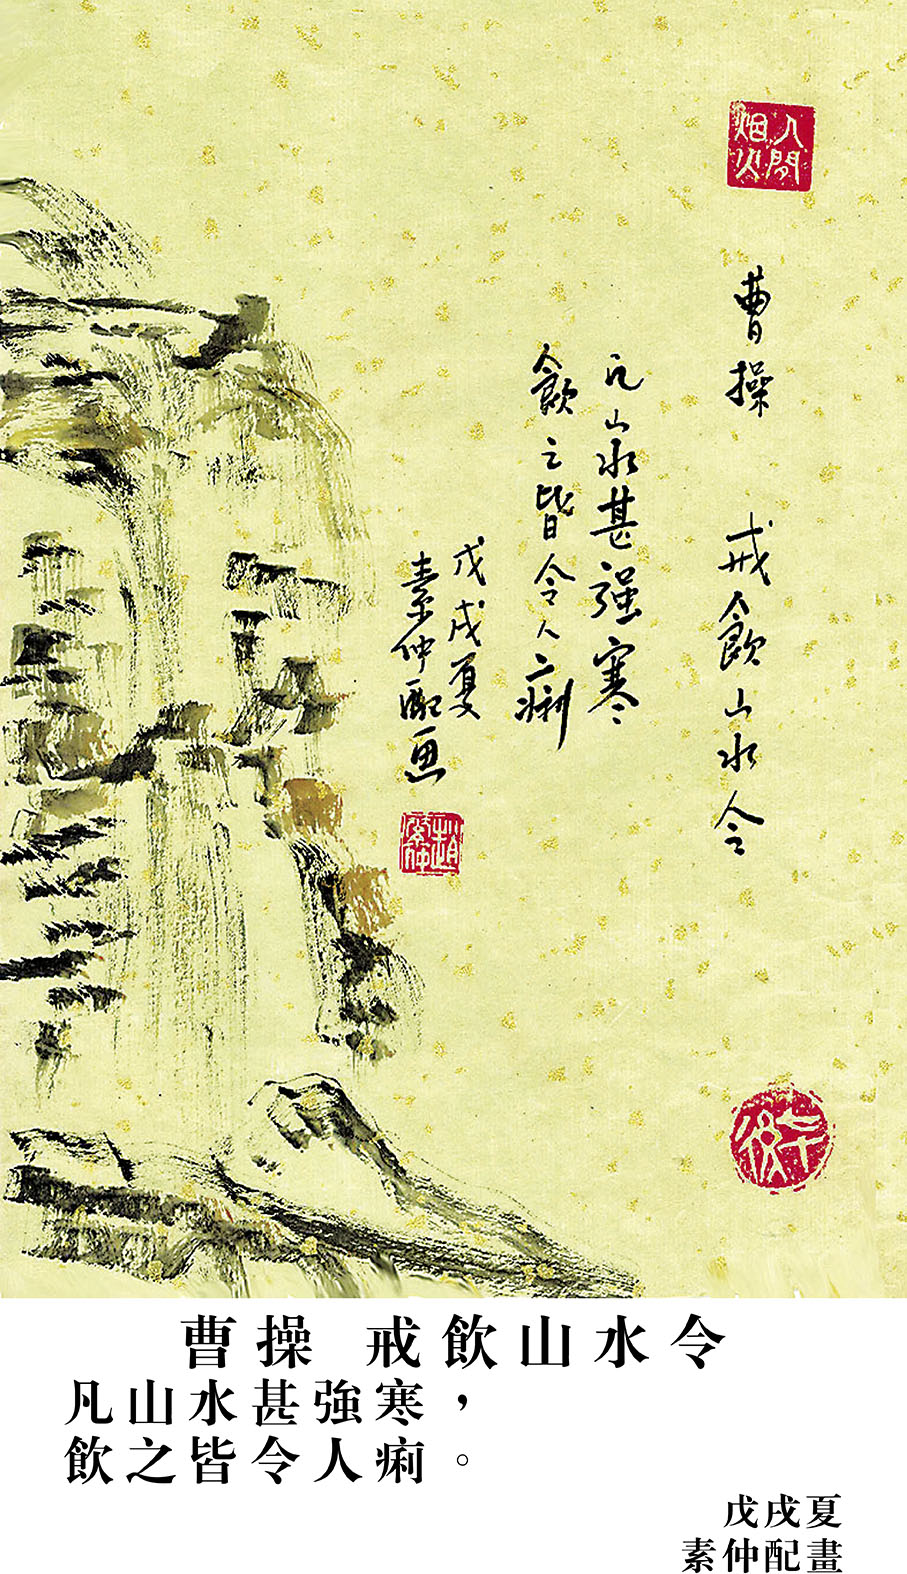 人間
烟火
曹操 戒飲山水令
凡山水甚强寒
飲之皆令人痢
戊戌夏
素仲配画
趙
素仲
曹操 戒飲山水令
凡山水甚強寒，
飲之皆令人痢。
戊戌夏
素仲配畫